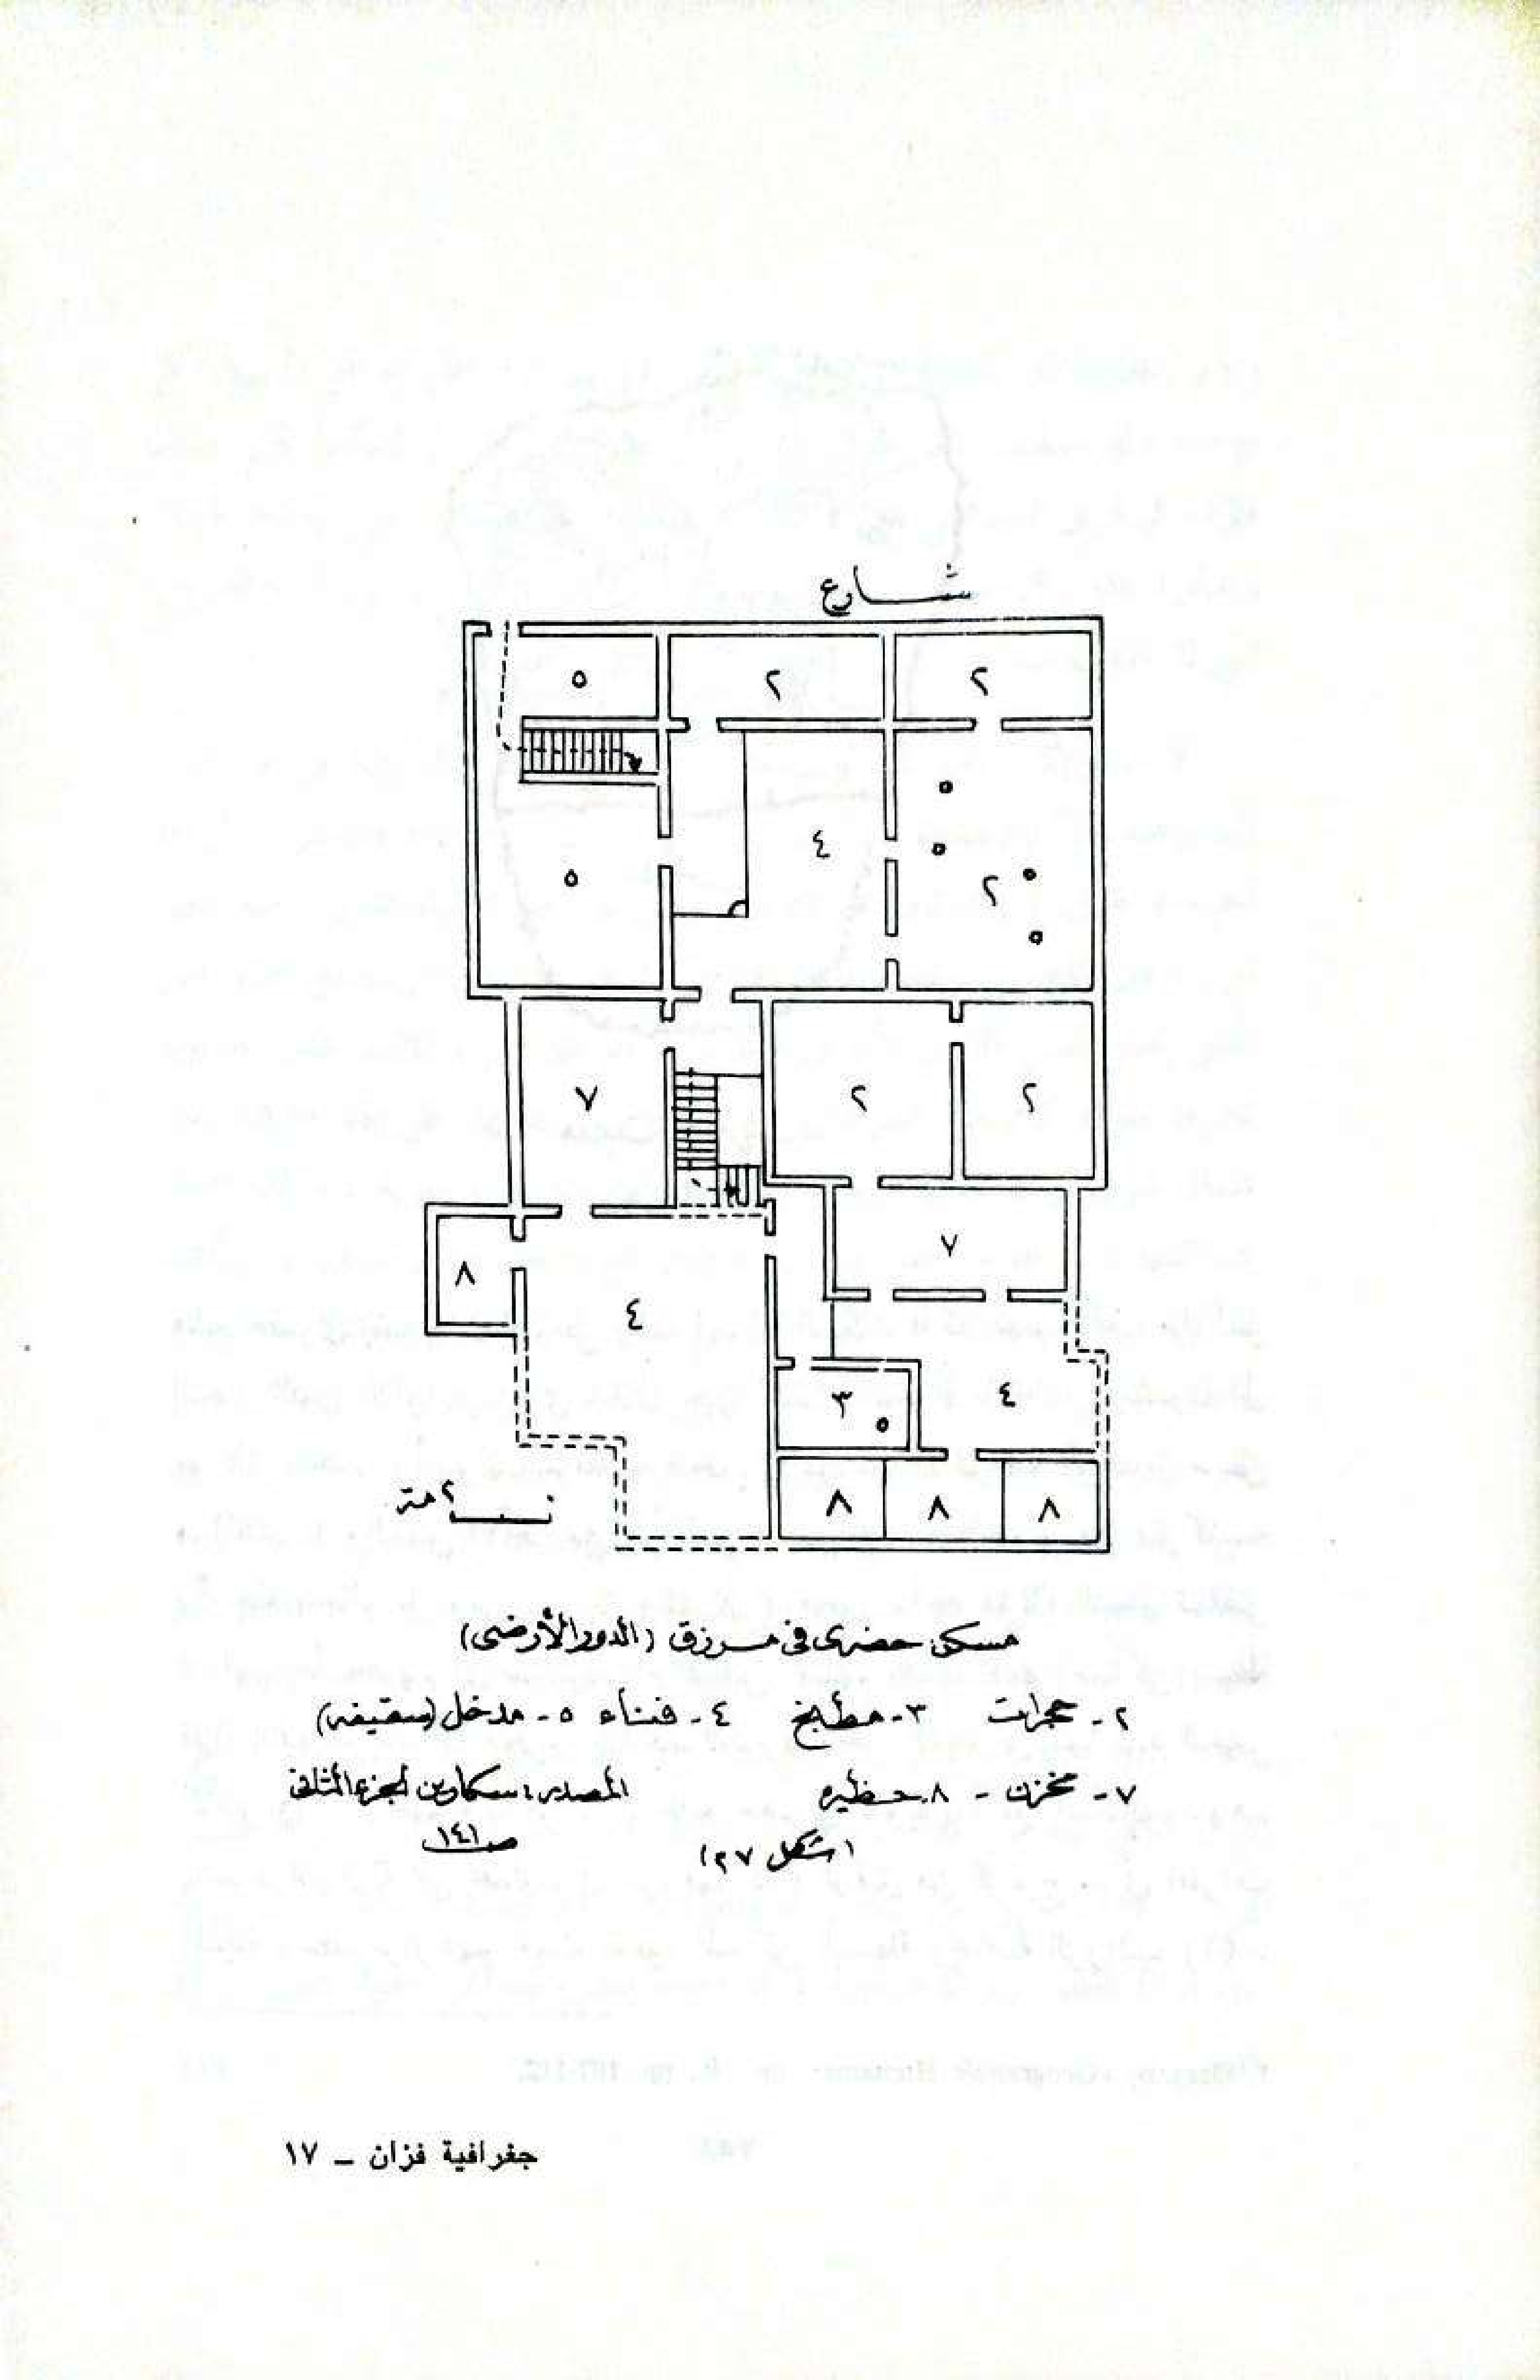 شارع
٥ ٢ ٢
٤
٥ ٢
٧ ٢ ٢
٧
٨ ٤
٣ ٤
٢ متر ٠
٨ ٨ ٨
مسكن حضرى فى مرزق (الدور الأرضى)
٢ - حجرات ٣ - مطبخ ٤ - فناء ٥ - مدخل (سقيفه)
٧ - مخزن - ٨ - حظيره المصدر : سكارين الجزء الثانى
ص ١٤١
(شكل ٢٧)
جغرافية فزان – ١٧